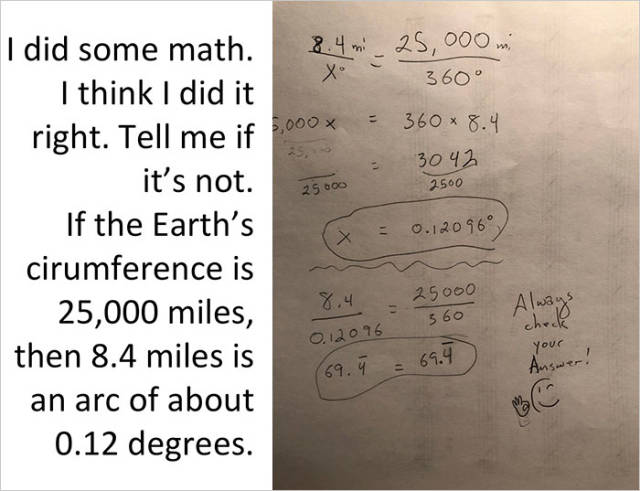 I did some math.
I think I did it
right. Tell me if
it’s not.
If the Earth’s
cirumference is
25,000 miles,
then 8.4 miles is
an arc of about
0.12 degrees.
8.4 mi = 25,000 mi
x° 360°
5,000 x = 360 × 8.4
= 3042
25000 2500
x = 0.12096°
8.4 = 25000
0.12096 360
69.4̄ = 69.4̄
Always
check
your
Answer!